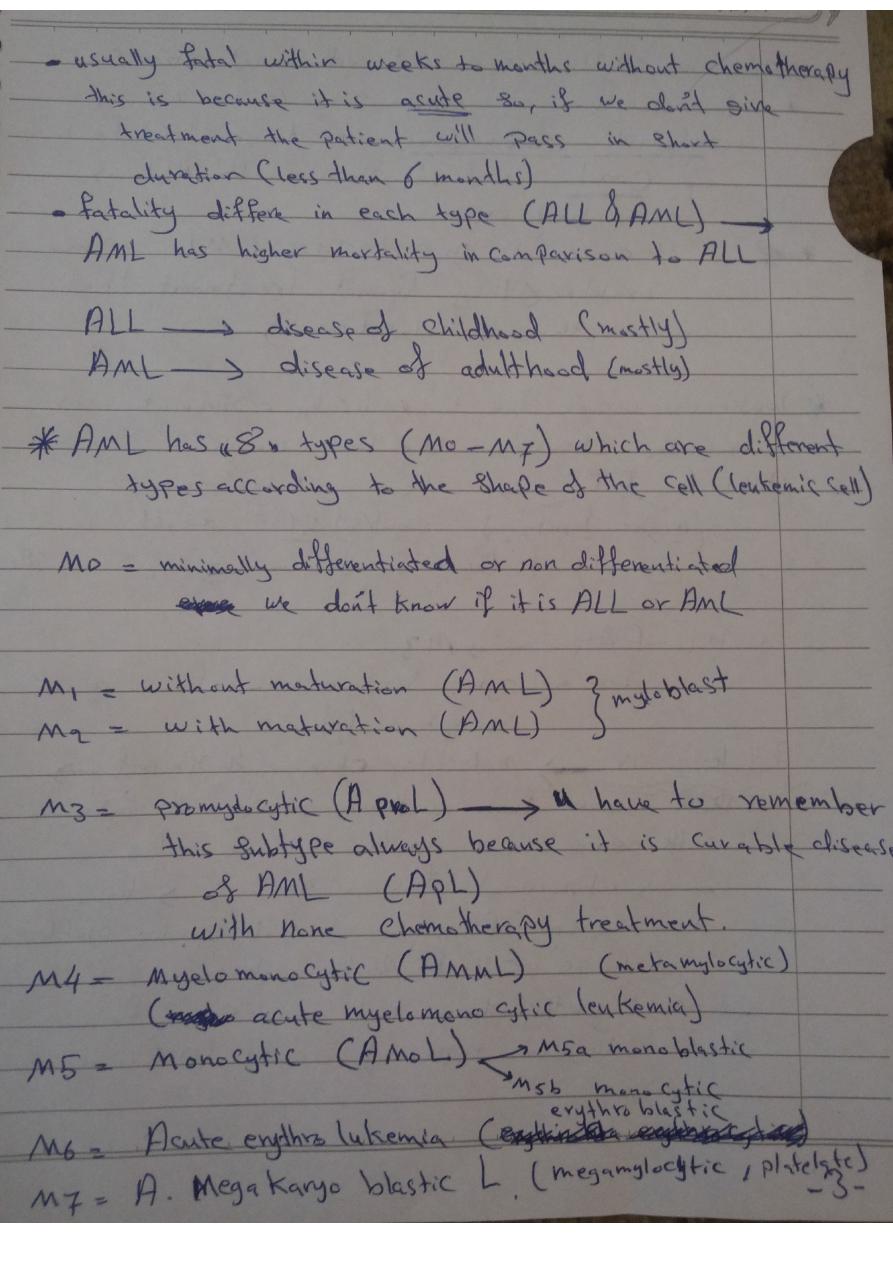 - usually fatal within weeks to months without chemotherapy
this is because it is acute so, if we don't give
treatment the patient will pass in short
duration (less than 6 months)
• fatality differe in each type (ALL & AML) →
AML has higher mortality in comparison to ALL
ALL → disease of childhood (mostly)
AML → disease of adulthood (mostly)
* AML has "8" types (M0 - M7) which are different
types according to the shape of the cell (leukemic cell)
M0 = minimally differentiated or non differentiated
we don't know if it is ALL or AML
M1 = without maturation (AML) } myloblast
M2 = with maturation (AML)
M3 = promylocytic (A proL) → u have to remember
this subtype always because it is curable disease
of AML (ApL)
with none chemotherapy treatment.
M4 = Myelomonocytic (AMML) (metamylocytic)
( acute myelomonocytic leukemia)
M5 = Monocytic (AMoL) → M5a monoblastic
→ M5b monocytic
erythroblastic
M6 = Acute erythro lukemia (
M7 = A. Megakaryo blastic L. (megamylocytic, platelate)
- 3 -